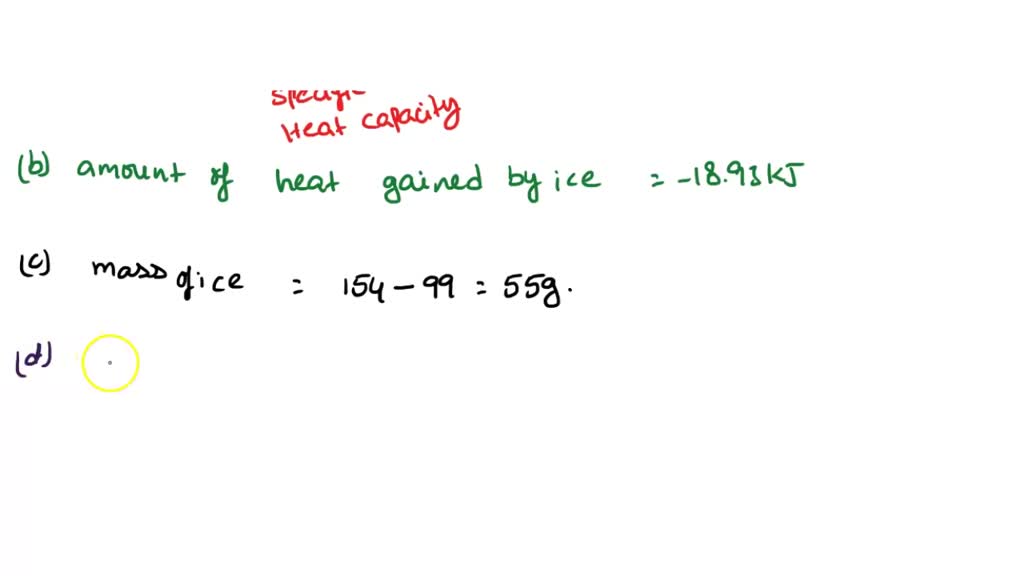 Heat capacity
(b) amount of heat gained by ice = -18.93 KJ
(c) mass of ice = 154 - 99 = 55g.
(d)